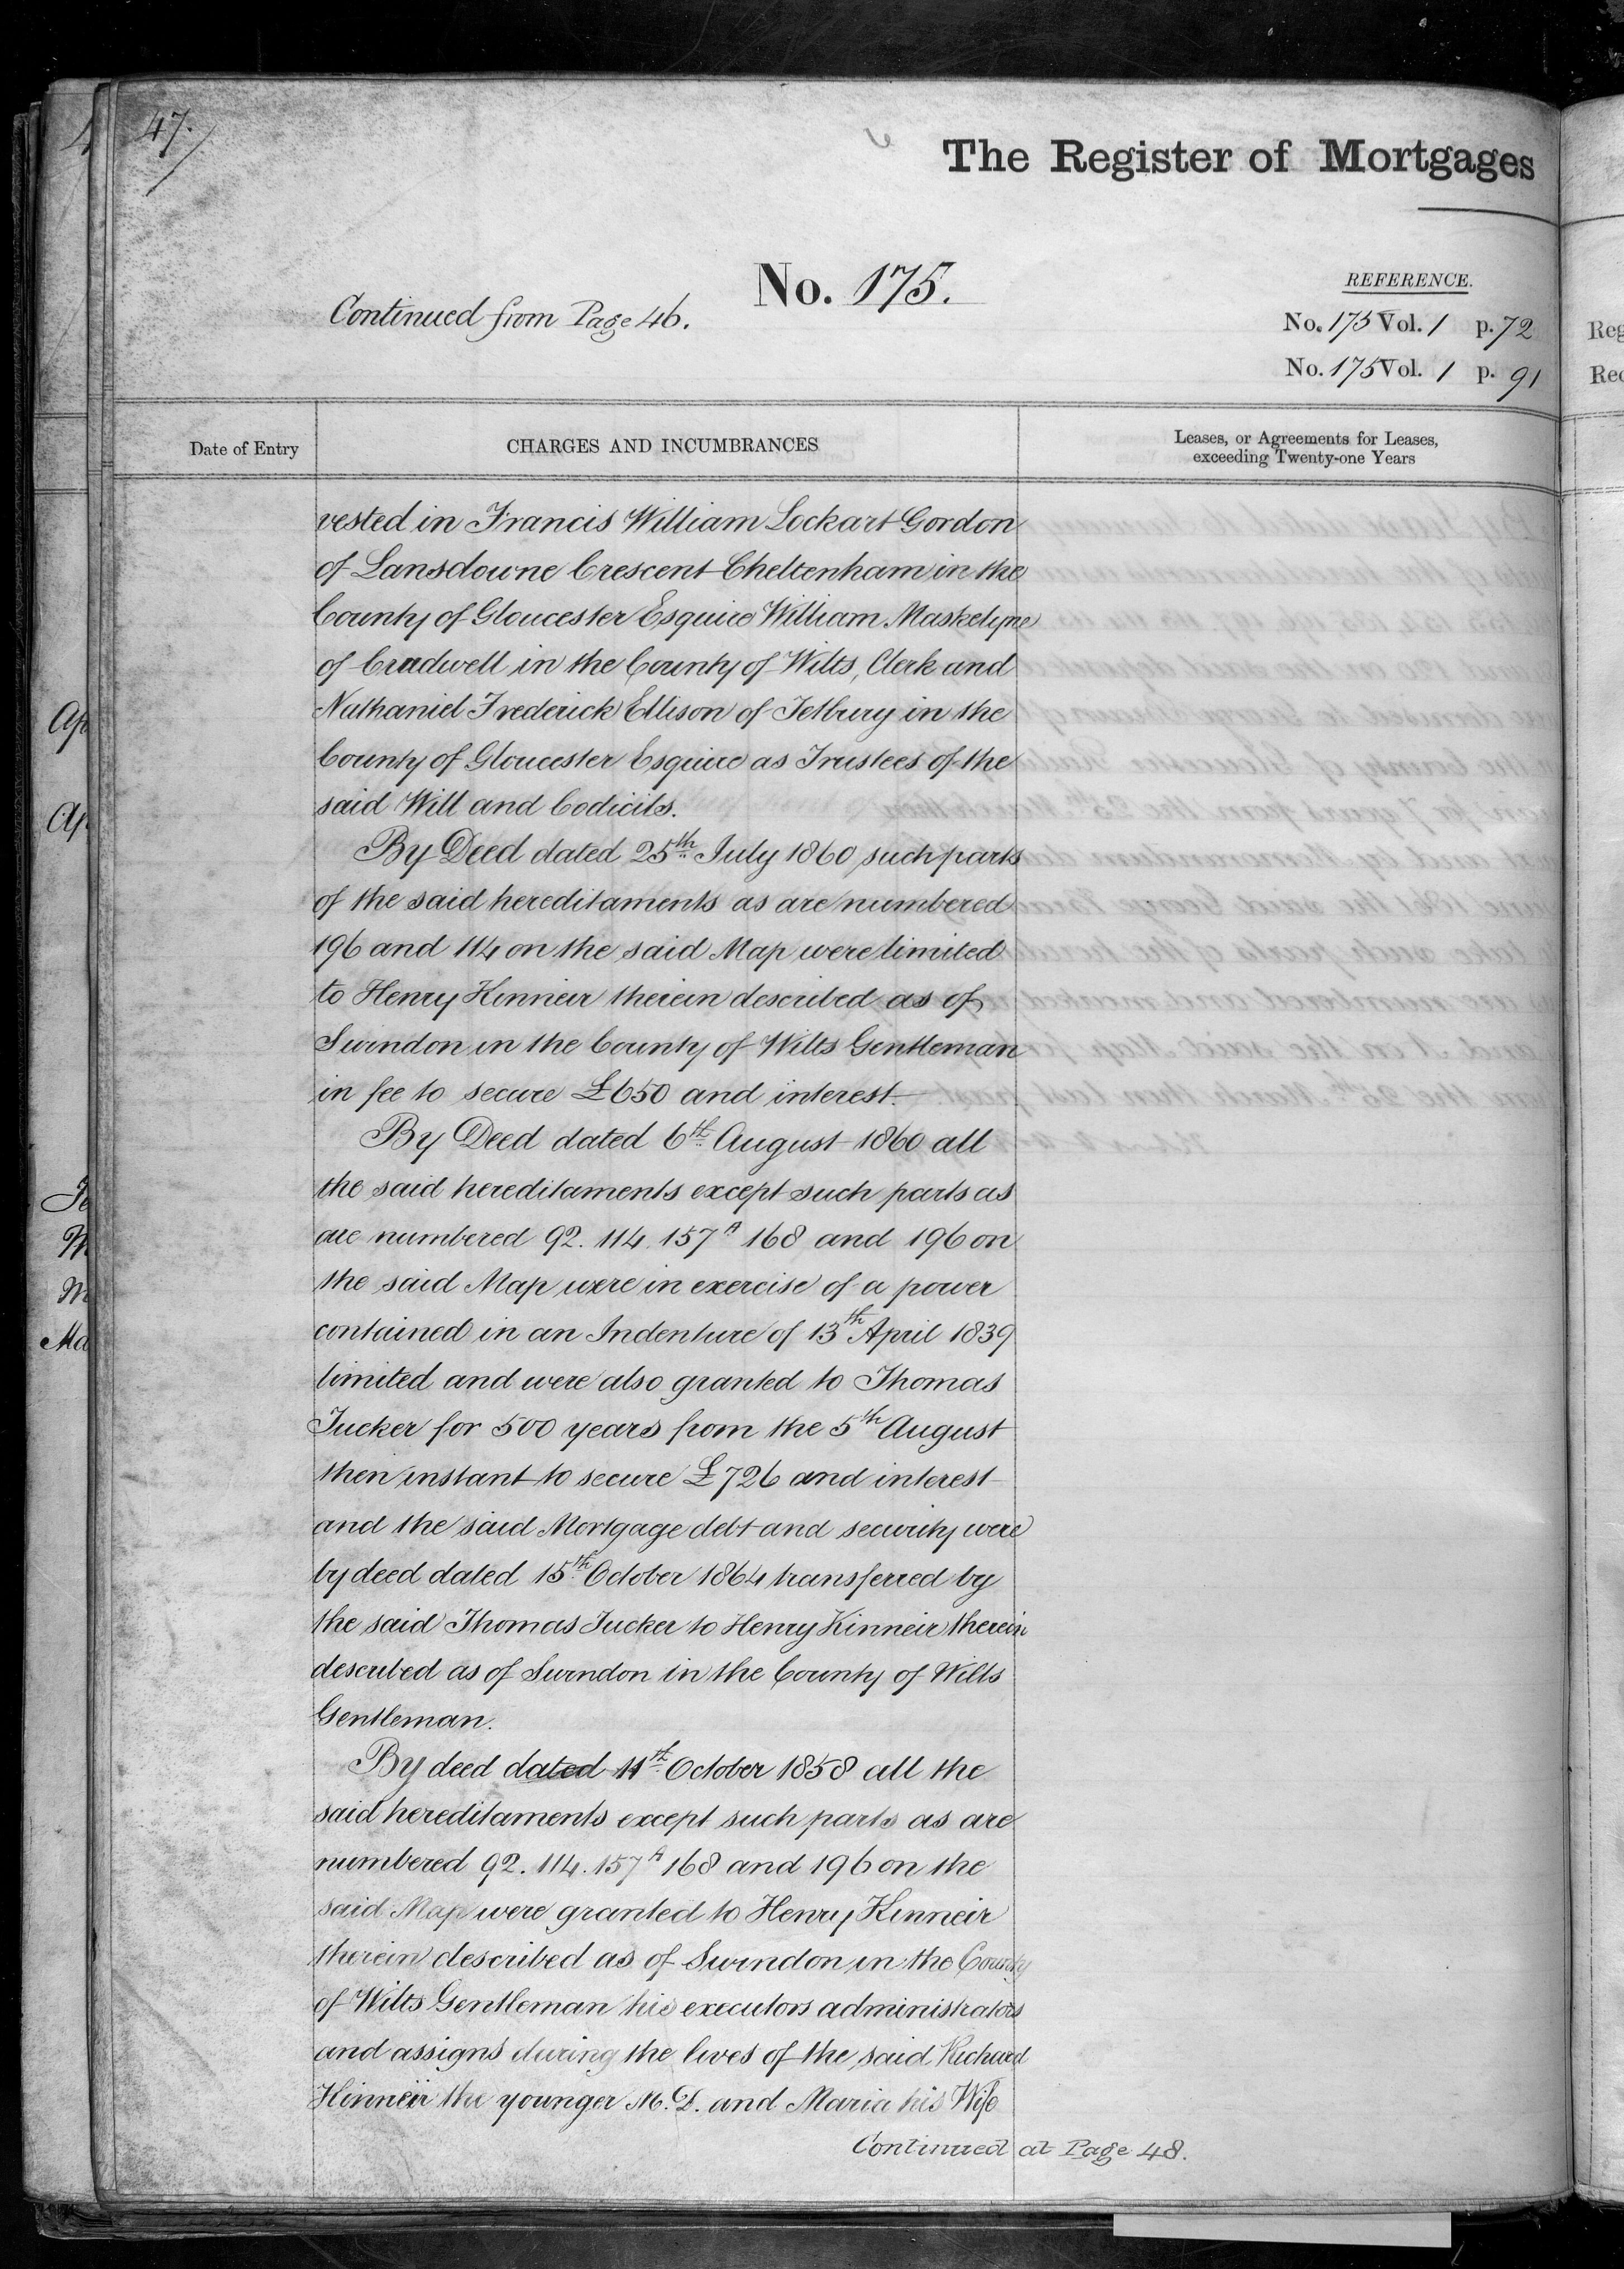 47.
The Register of Mortgages
No. 175.
Continued from Page 46.
REFERENCE.
No. 175 Vol. 1 p. 72
No. 175 Vol. 1 p. 91
Reg
Rec
Date of Entry
CHARGES AND INCUMBRANCES
Leases, or Agreements for Leases,
exceeding Twenty-one Years
vested in Francis William Lockart Gordon
of Lansdowne Crescent Cheltenham in the
County of Gloucester Esquire William Maskelyne
of Crudwell in the County of Wilts, Clerk and
Nathaniel Frederick Ellison of Tetbury in the
County of Gloucester Esquire as Trustees of the
said Will and Codicils.
By Deed dated 25th July 1860 such parts
of the said hereditaments as are numbered
196 and 114 on the said Map were limited
to Henry Kinneir therein described as of
Swindon in the County of Wilts Gentleman
in fee to secure £650 and interest.
By Deed dated 6th August 1860 all
the said hereditaments except such parts as
are numbered 92. 114. 157A 168 and 196 on
the said Map were in exercise of a power
contained in an Indenture of 13th April 1839
limited and were also granted to Thomas
Tucker for 500 years from the 5th August
then instant to secure £726 and interest
and the said Mortgage debt and security were
by deed dated 15th October 1864 transferred by
the said Thomas Tucker to Henry Kinneir therein
described as of Swindon in the County of Wilts
Gentleman.
By deed dated 11th October 1858 all the
said hereditaments except such parts as are
numbered 92. 114. 157A 168 and 196 on the
said Map were granted to Henry Kinneir
therein described as of Swindon in the County
of Wilts Gentleman his executors administrators
and assigns during the lives of the said Richard
Kinneir the younger M.D. and Maria his Wife
Continued at Page 48.